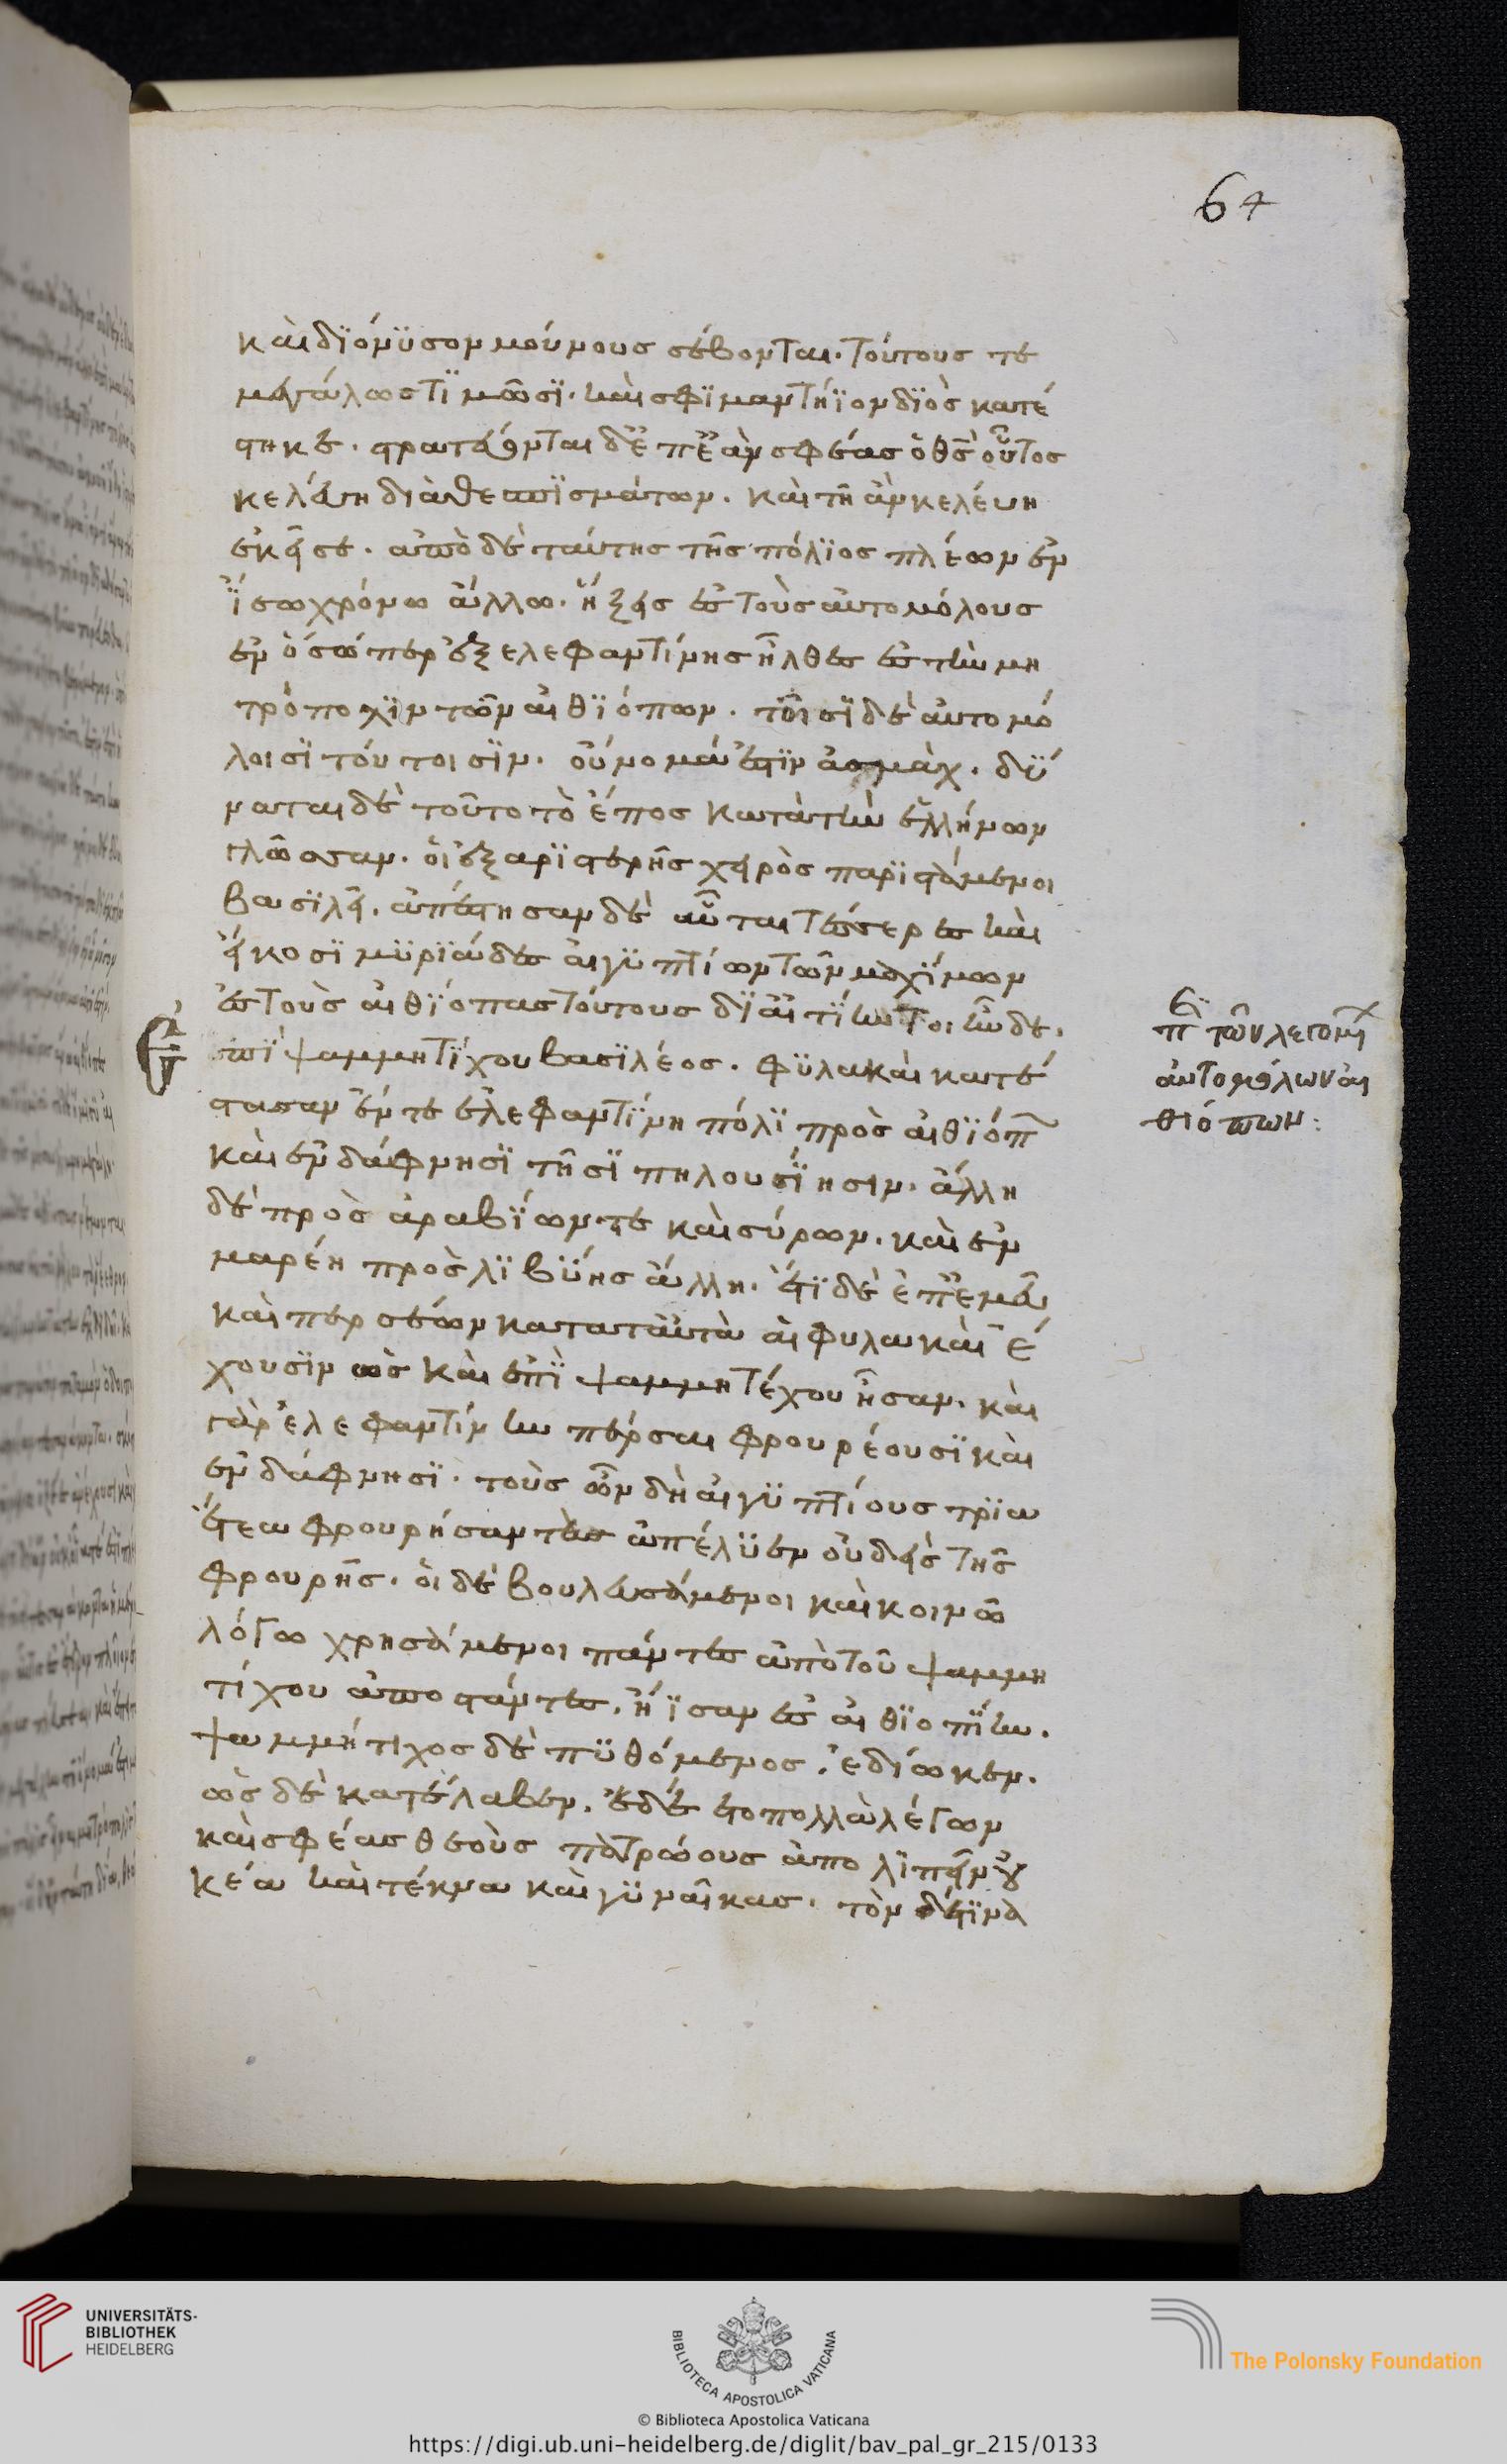 64
καὶ διόνϋσον μούνους σέβονται. τούτους τε
μεγάλως τϊμῶσϊ. καὶ σφϊ μαντήϊον δϊὸς κατέ
στηκε. στρατεύονται δὲ ἐπεὰν σφέας ὁ θεὸς οὗτος
κελεύη διὰ θεσπϊσμάτων. καὶ τῆ ἂν κελεύη
ἐκεῖσε. ἀπὸ δὲ ταύτης τῆς πόλϊος πλέων ἐν
ἴσω χρόνω ἄλλω. ἥξεις ἐς τοὺς αὐτομόλους
ἐν ὅσω περ ἐξ ελεφαντίνης ἦλθες ἐς τὴν μη
τρόπολϊν τῶν αἰθϊόπων. τοῖσϊ δὲ αὐτομό
λοισϊ τούτοισϊν. οὔνομα ἐστϊν ἀσμὰχ. δΰ
ναται δὲ τοῦτο τὸ ἔπος κατὰ τὴν ἑλλήνων
γλῶσσαν. οἱ ἐξ αρϊστερῆς χειρὸς παρϊστάμενοι
βασϊλεῖ. ἀπέστησαν δὲ αὗται τέσσερες καὶ
εἴκοσϊ μϋρϊάδες αἰγϋπτίων τῶν μαχΐμων
ἐς τοὺς αἰθϊόπας τούτους δϊ αἰτΐην τοιήνδε.
ἐπὶ ψαμμητΐχου βασϊλέος. φϋλακαὶ κατέ
στασαν ἔν τε ἐλεφαντΐνη πόλϊ πρὸς αἰθϊόπ
καὶ ἐν δάφνησϊ τῆσϊ πηλουσΐησιν. ἄλλη
δὲ πρὸς ἀραβΐων τε καὶ σύρων. καὶ ἐν
μαρέη πρὸς λϊβΰης ἄλλη. ἔτϊ δὲ ἐπ' ἐμεῦ
καὶ περσέων κατὰ ταὐτὰ αἱ φυλακαὶ ἔ
χουσϊν ὡς καὶ ἐπῒ ψαμμητέχου ἦσαν. καὶ
γὰρ ἐλεφαντίνην πέρσαι φρουρέουσϊ καὶ
ἐν δάφνησϊ. τοὺς ὦν δὴ αἰγϋπτίους τρϊα
ἔτεα φρουρήσαντας ἀπέλϋεν οὐδεὶς τῆς
φρουρῆς. οἱ δὲ βουλευσάμενοι καὶ κοινῶ
λόγω χρησάμενοι πάντες ἀπὸ τοῦ ψαμμη
τίχου ἀποστάντες. ἤϊσαν ἐς αἰθϊοπΐην.
ψαμμήτιχος δὲ πϋθόμενος. ἐδίωκεν.
ὡς δὲ κατέλαβεν. ἐδέετο πολλὰ λέγων
καὶ σφέας θεοὺς πατρώους ἀπολϊπεῖν οὐ
κέα καὶ τέκνα καὶ γϋναῖκας. τὸν δέ τϊνα
π τῶν λεγομ
αὐτομόλων αἰ
θιόπων:
UNIVERSITÄTS-
BIBLIOTHEK
HEIDELBERG
BIBLIOTECA APOSTOLICA VATICANA
The Polonsky Foundation
© Biblioteca Apostolica Vaticana
https://digi.ub.uni-heidelberg.de/diglit/bav_pal_gr_215/0133